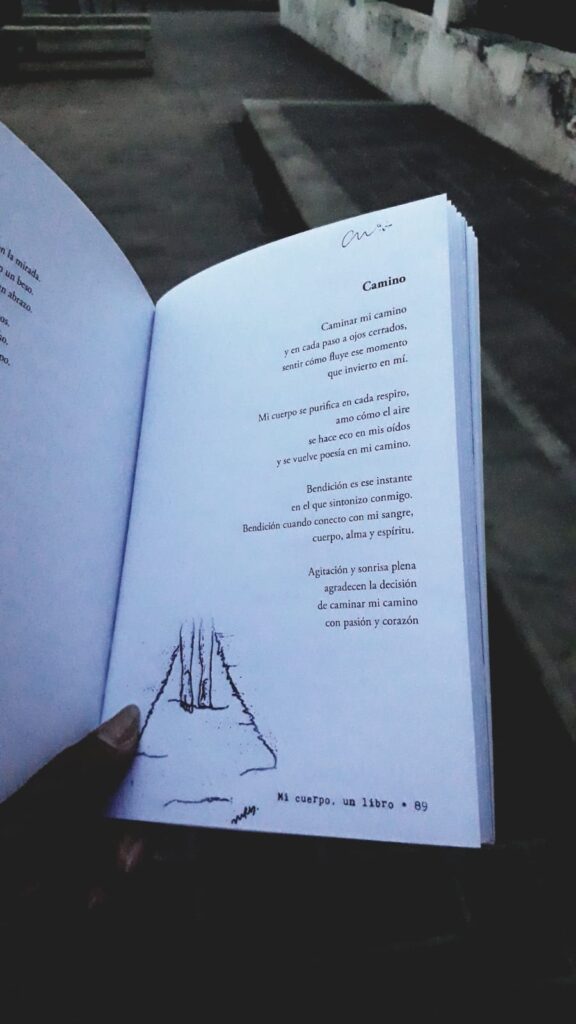 n la mirada.
un beso.
abrazo.
os.
po.
Camino
Caminar mi camino
y en cada paso a ojos cerrados,
sentir cómo fluye ese momento
que invierto en mí.
Mi cuerpo se purifica en cada respiro,
amo cómo el aire
se hace eco en mis oídos
y se vuelve poesía en mi camino.
Bendición es ese instante
en el que sintonizo conmigo.
Bendición cuando conecto con mi sangre,
cuerpo, alma y espíritu.
Agitación y sonrisa plena
agradecen la decisión
de caminar mi camino
con pasión y corazón
Mi cuerpo, un libro • 89